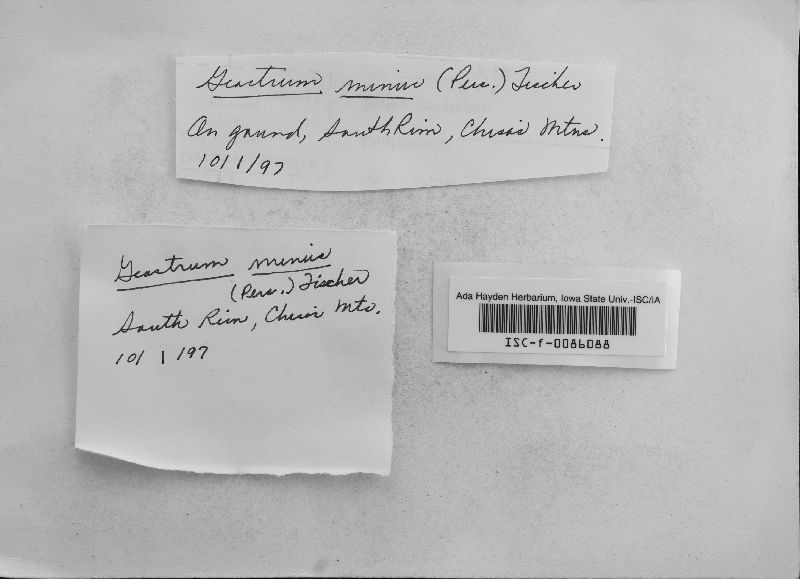 Geastrum minus (Pers.) Fischer
On gound, South Rim, Chisos Mtns.
10/1/97
Geastrum minus
(Pers.) Fischer
South Rim, Chisos Mts.
10/1/97
Ada Hayden Herbarium, Iowa State Univ.-ISC/IA
ISC-f-0086088